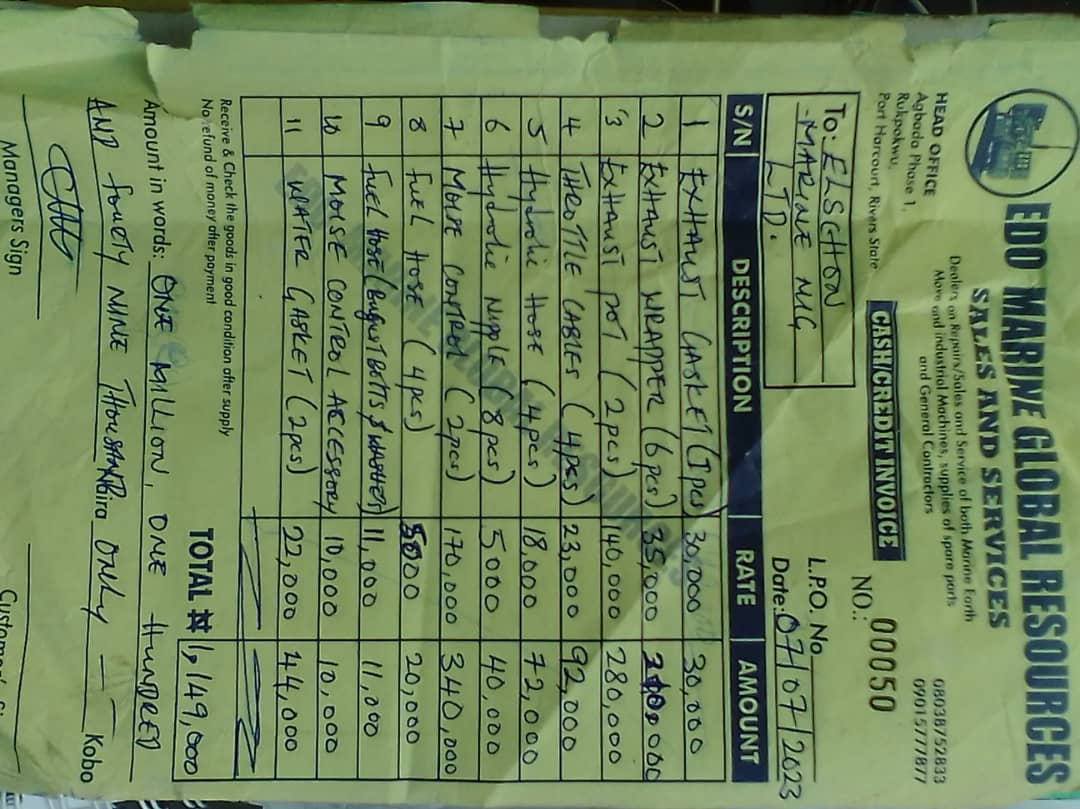 EDO MARINE GLOBAL RESOURCES
SALES AND SERVICES
Dealers on Repairs/Sales and Service of both Marine Earth
Move and industrial Machines, supplies of spare parts
and General Contractors
HEAD OFFICE
Agbada Phase 1,
Rukpokwu,
Port Harcourt, Rivers State
08038752833
09015777877
CASH/CREDIT INVOICE
NO.: 00050
To: ELSCHON
MARINE NIG
LTD.
L.P.O. No
Date: 07/07/2023
S/N DESCRIPTION RATE AMOUNT
1 EXHAUST GASKET (1pcs) 30,000 30,000
2 EXHAUST WRAPPER (6pcs) 35,000 210,000
3 EXHAUST POT (2pcs) 140,000 280,000
4 THROTTLE CABLES (4pcs) 23,000 92,000
5 Hydrolic HOSE (4pcs) 18,000 72,000
6 Hydrolic Nipple (8pcs) 5000 40,000
7 MORSE CONTROL (2pcs) 170,000 340,000
8 FUEL HOSE (4pcs) 5000 20,000
9 FUEL HOSE BOTTS & WASHERS 11,000 11,000
10 MORSE CONTROL ACCESSORY 10,000 10,000
11 WATER GASKET (2pcs) 22,000 44,000
Receive & Check the goods in good condition after supply
No refund of money after payment
TOTAL ₦ 1,149,000
Amount in words: ONE MILLION, ONE HUNDRED
AND FOURTY NINE THOUSAND Naira ONLY — Kobo
Managers Sign